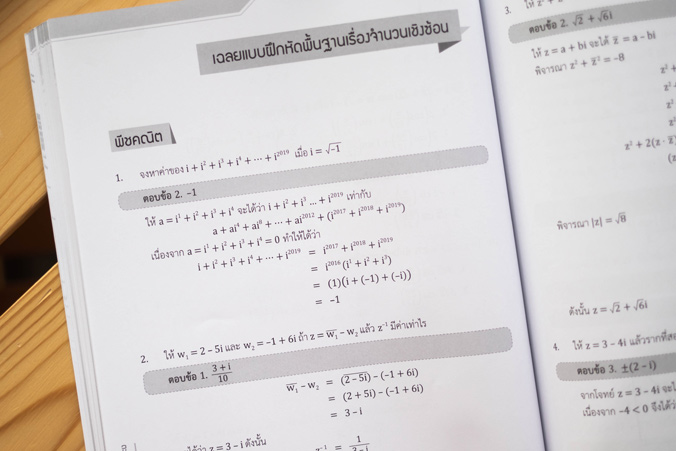 เฉลยแบบฝึกหัดพื้นฐานเรื่องจำนวนเชิงซ้อน
พีชคณิต
1. จงหาค่าของ i + i² + i³ + i⁴ + ⋯ + i²⁰¹⁹ เมื่อ i = √-1
ตอบข้อ 2. -1
ให้ a = i¹ + i² + i³ + i⁴ จะได้ว่า i + i² + i³ ... + i²⁰¹⁹ เท่ากับ
a + ai⁴ + ai⁸ + ⋯ + ai²⁰¹² + (i²⁰¹⁷ + i²⁰¹⁸ + i²⁰¹⁹)
เนื่องจาก a = i¹ + i² + i³ + i⁴ = 0 ทำให้ได้ว่า
i + i² + i³ + i⁴ + ⋯ + i²⁰¹⁹ = i²⁰¹⁷ + i²⁰¹⁸ + i²⁰¹⁹
= i²⁰¹⁶(i¹ + i² + i³)
= (1)(i + (-1) + (-i))
= -1
2. ให้ w₁ = 2 – 5i และ w₂ = –1 + 6i ถ้า z = w̅₁ – w₂ แล้ว z⁻¹ มีค่าเท่าไร
ตอบข้อ 1. (3 + i)/10
w̅₁ – w₂ = (2 – 5i)̅ – (–1 + 6i)
= (2 + 5i) – (–1 + 6i)
= 3 – i
ได้ว่า z = 3 – i ดังนั้น
z⁻¹ = 1/(3 – i)
3. ให้
ตอบข้อ 2. √2 + √6i
ให้ z = a + bi จะได้ z̅ = a – bi
พิจารณา z² + z̅² = –8
z² +
z²
z²
z² + 2(z · z̅)
(z
พิจารณา |z| = √8
ดังนั้น z = √2 + √6i
4. ให้ z = 3 – 4i แล้วรากที่สอ
ตอบข้อ 3. ±(2 – i)
จากโจทย์ z = 3 – 4i จะได้
เนื่องจาก –4 < 0 จึงได้ว่